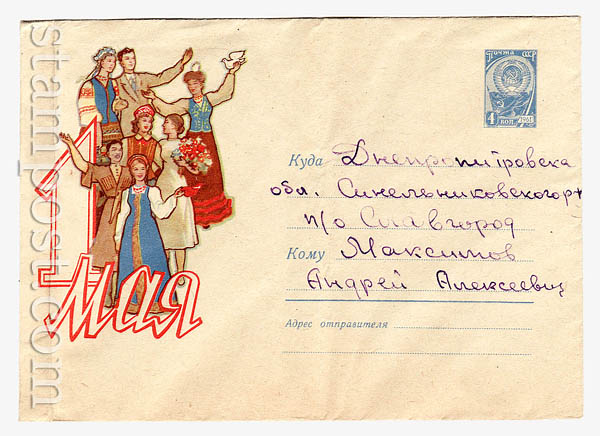 почта СССР
4 коп. 1961
1
МАЯ
Куда Днепропитровска
обл. Синельниковского р-н
п/о Славгород
Кому Максимов
Андрей Алексеевич
Адрес отправителя
stamp-post.com